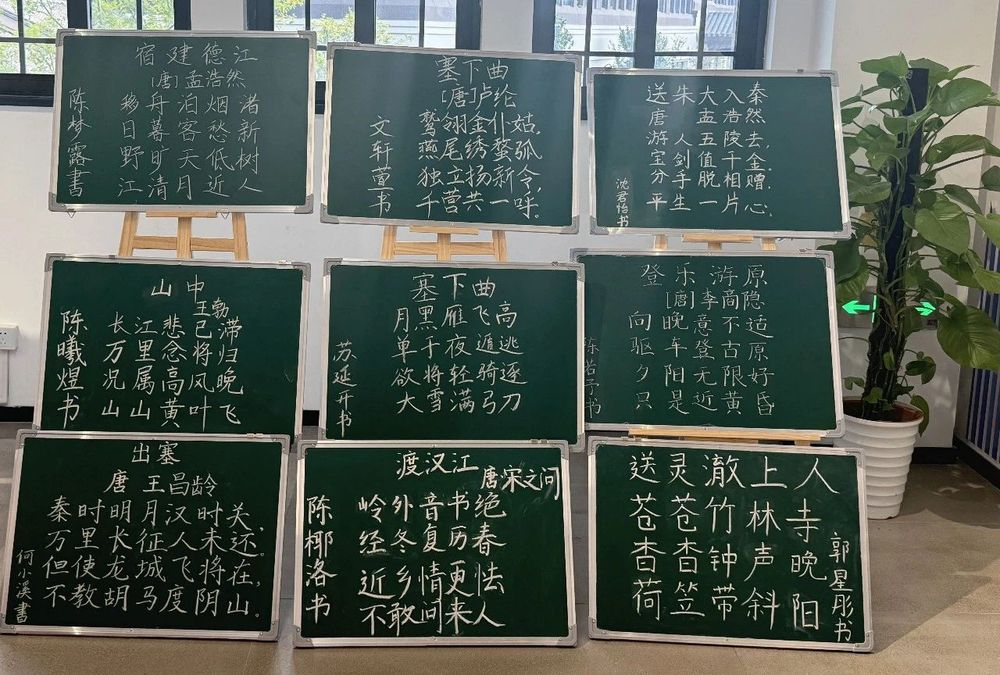 宿建德江
[唐]孟浩然
移舟泊烟渚
日暮客愁新
野旷天低树
江清月近人
陈梦露書
塞下曲
[唐]卢纶
鹫翎金仆姑,
燕尾绣蝥弧
独立扬新令,
千营共一呼。
文轩萱书
送朱大入秦
唐 孟浩然
游人五陵去,
宝剑值千金,
分手脱相赠,
平生一片心。
沈君怡书
山中
王勃
长江悲已滞
万里念将归
况属高风晚
山山黄叶飞
陈曦煜书
塞下曲
月黑雁飞高
单于夜遁逃
欲将轻骑逐
大雪满弓刀
苏延开书
登乐游原
[唐]李商隐
向晚意不适
驱车登古原
夕阳无限好
只是近黄昏
出塞
唐 王昌龄
秦时明月汉时关,
万里长征人未还。
但使龙城飞将在,
不教胡马度阴山。
何小溪書
渡汉江
唐宋之问
岭外音书绝
经冬复历春
近乡情更怯
不敢问来人
陈椰洛书
送灵澈上人
苍苍竹林寺
杳杳钟声晚
荷笠带斜阳
郭星彤书